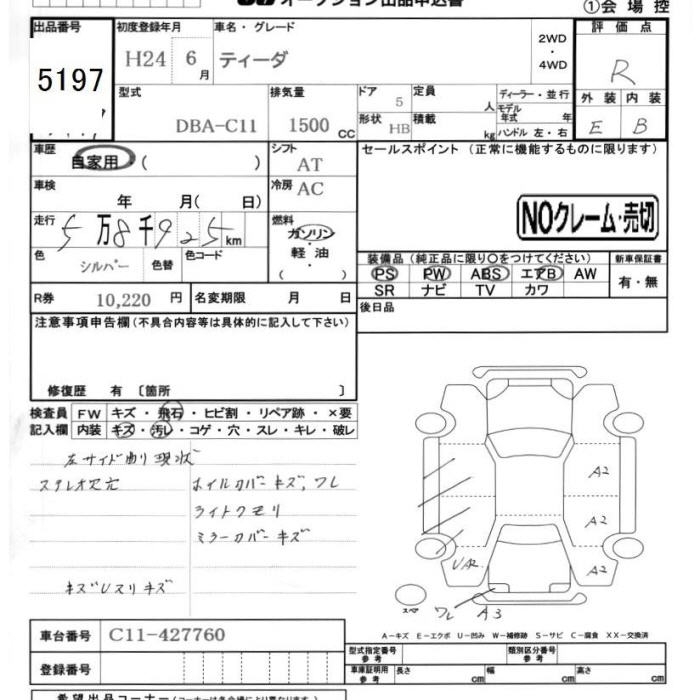 オークション出品申込書
①会場控
出品番号 初度登録年月 車名・グレード 評価点
5197 H24 6月 ティーダ 2WD・4WD R
型式 排気量 ドア 定員 ディーラー・並行 外装 内装
DBA-C11 1500 CC 5 人 モデル年式 年 E B
形状 HB 積載 kg ハンドル 左・右
車歴 自家用 ( ) シフト AT セールスポイント (正常に機能するものに限ります)
車検 年 月( 日) 冷房 AC
NOクレーム・売切
走行 5万8千925km 燃料 ガソリン・軽油・( )
色 シルバー 色替 色コード
装備品 (純正品に限り○をつけてください) 新車保証書
PS PW ABS エアB AW 有・無
SR ナビ TV カワ
R券 10,220 円 名変期限 月 日 後日品
注意事項申告欄 (不具合内容等は具体的に記入して下さい)
修復歴 有 〔箇所 〕
検査員記入欄 FW キズ・飛石・ヒビ割・リペア跡・×要
内装 キズ・汚レ・コゲ・穴・スレ・キレ・破レ
左サイド曲り現状
ステレオ欠品 ホイルカバーキズ,ワレ
ライトクモリ
ミラーカバーキズ
キズUスリキズ
A2
A2
UA2 A2
スペア ワレ A3
A-キズ E-エクボ U-凹み W-補修跡 S-サビ C-腐食 XX-交換済
車台番号 C11-427760
型式指定番号 参考 類別区分番号 参考
登録番号 車庫証明用 参考 長さ cm 幅 cm 高さ cm
希望出品コーナー